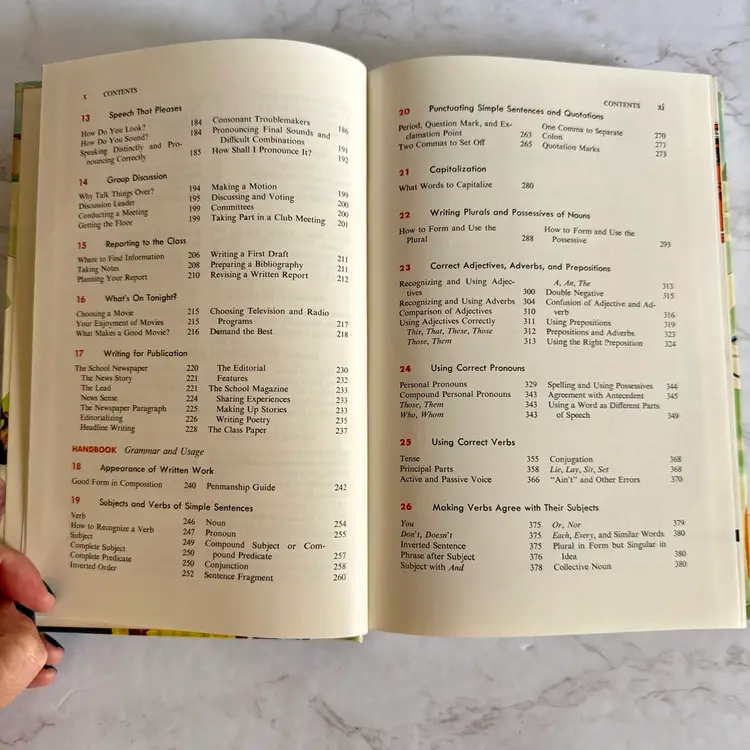 x CONTENTS
13 Speech That Pleases
How Do You Look? 184
How Do You Sound? 184
Speaking Distinctly and Pro-
nouncing Correctly 185
Consonant Troublemakers 186
Pronouncing Final Sounds and
Difficult Combinations 191
How Shall I Pronounce It? 192
14 Group Discussion
Why Talk Things Over? 194
Discussion Leader 195
Conducting a Meeting 199
Getting the Floor 199
Making a Motion 199
Discussing and Voting 200
Committees 200
Taking Part in a Club Meeting 201
15 Reporting to the Class
Where to Find Information 206
Taking Notes 208
Planning Your Report 210
Writing a First Draft 211
Preparing a Bibliography 211
Revising a Written Report 212
16 What's On Tonight?
Choosing a Movie 215
Your Enjoyment of Movies 215
What Makes a Good Movie? 216
Choosing Television and Radio
Programs 217
Demand the Best 218
17 Writing for Publication
The School Newspaper 220
The News Story 221
The Lead 221
News Sense 224
The Newspaper Paragraph 225
Editorializing 226
Headline Writing 228
The Editorial 230
Features 232
The School Magazine 233
Sharing Experiences 233
Making Up Stories 233
Writing Poetry 235
The Class Paper 237
HANDBOOK Grammar and Usage
18 Appearance of Written Work
Good Form in Composition 240
Penmanship Guide 242
19 Subjects and Verbs of Simple Sentences
Verb 246
How to Recognize a Verb 247
Subject 249
Complete Subject 250
Complete Predicate 250
Inverted Order 252
Noun 254
Pronoun 255
Compound Subject or Com-
pound Predicate 257
Conjunction 258
Sentence Fragment 260
CONTENTS xi
20 Punctuating Simple Sentences and Quotations
Period, Question Mark, and Ex-
clamation Point 263
Two Commas to Set Off 265
One Comma to Separate 270
Colon 273
Quotation Marks 273
21 Capitalization
What Words to Capitalize 280
22 Writing Plurals and Possessives of Nouns
How to Form and Use the
Plural 288
How to Form and Use the
Possessive 293
23 Correct Adjectives, Adverbs, and Prepositions
Recognizing and Using Adjec-
tives 300
Recognizing and Using Adverbs 304
Comparison of Adjectives 310
Using Adjectives Correctly 311
This, That, These, Those 312
Those, Them 313
A, An, The 313
Double Negative 315
Confusion of Adjective and Ad-
verb 316
Using Prepositions 319
Prepositions and Adverbs 323
Using the Right Preposition 324
24 Using Correct Pronouns
Personal Pronouns 329
Compound Personal Pronouns 343
Those, Them 343
Who, Whom 343
Spelling and Using Possessives 344
Agreement with Antecedent 345
Using a Word as Different Parts
of Speech 349
25 Using Correct Verbs
Tense 355
Principal Parts 358
Active and Passive Voice 366
Conjugation 368
Lie, Lay, Sit, Set 368
"Ain't" and Other Errors 370
26 Making Verbs Agree with Their Subjects
You 375
Don't, Doesn't 375
Inverted Sentence 375
Phrase after Subject 376
Subject with And 378
Or, Nor 379
Each, Every, and Similar Words 380
Plural in Form but Singular in
Idea 380
Collective Noun 380